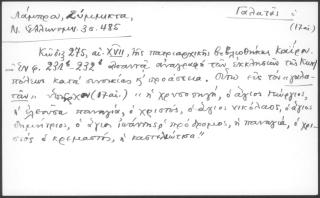 Λάμπρου, Σύμμικτα, Γαλατᾶς
Ν. Ἑλληνομν. 3σ. 485 (17 αἰ.)
Κῶδιξ 275, αἰ. XVII, τῆς πατριαρχικῆς βιβλιοθήκης Καΐρου.
Ἐν φ. 231β - 232β ἀναγραφὴ τῶν ἐκκλησιῶν τῆς Κων/
πόλεως κατὰ συνοικίας ἢ προάστεια. Οὕτω εἰς τὸν "γαλα-
τᾶν" ὑπῆρχον (17 αἰ.) "ἡ χρυσοπηγή, ὁ ἅγιος Γεώργιος,
ἡ ἐλεοῦσα παναγία, ὁ χριστός, ὁ ἅγιος νικόλαος, ὁ ἅγιος
δημήτριος, ὁ ἅγιος ἰωάννης ὁ πρόδρομος, ἡ παναγία, ὁ χρι-
στὸς ὁ κρεμαστός, ἡ καστελιώτισα"